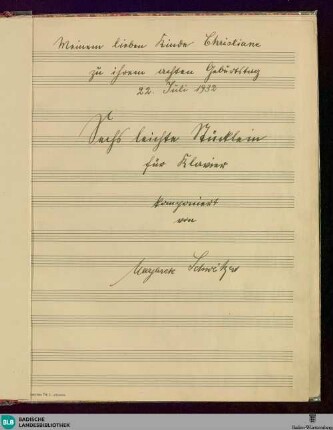 Meinem lieben Kinde Christiane
zu ihrem achten Geburtstag
22 Juli 1932
Sechs leichte Stücklein
für Klavier
komponiert
von
Margarete Schweikert
BLB
BADISCHE
LANDESBIBLIOTHEK
Baden-Württemberg